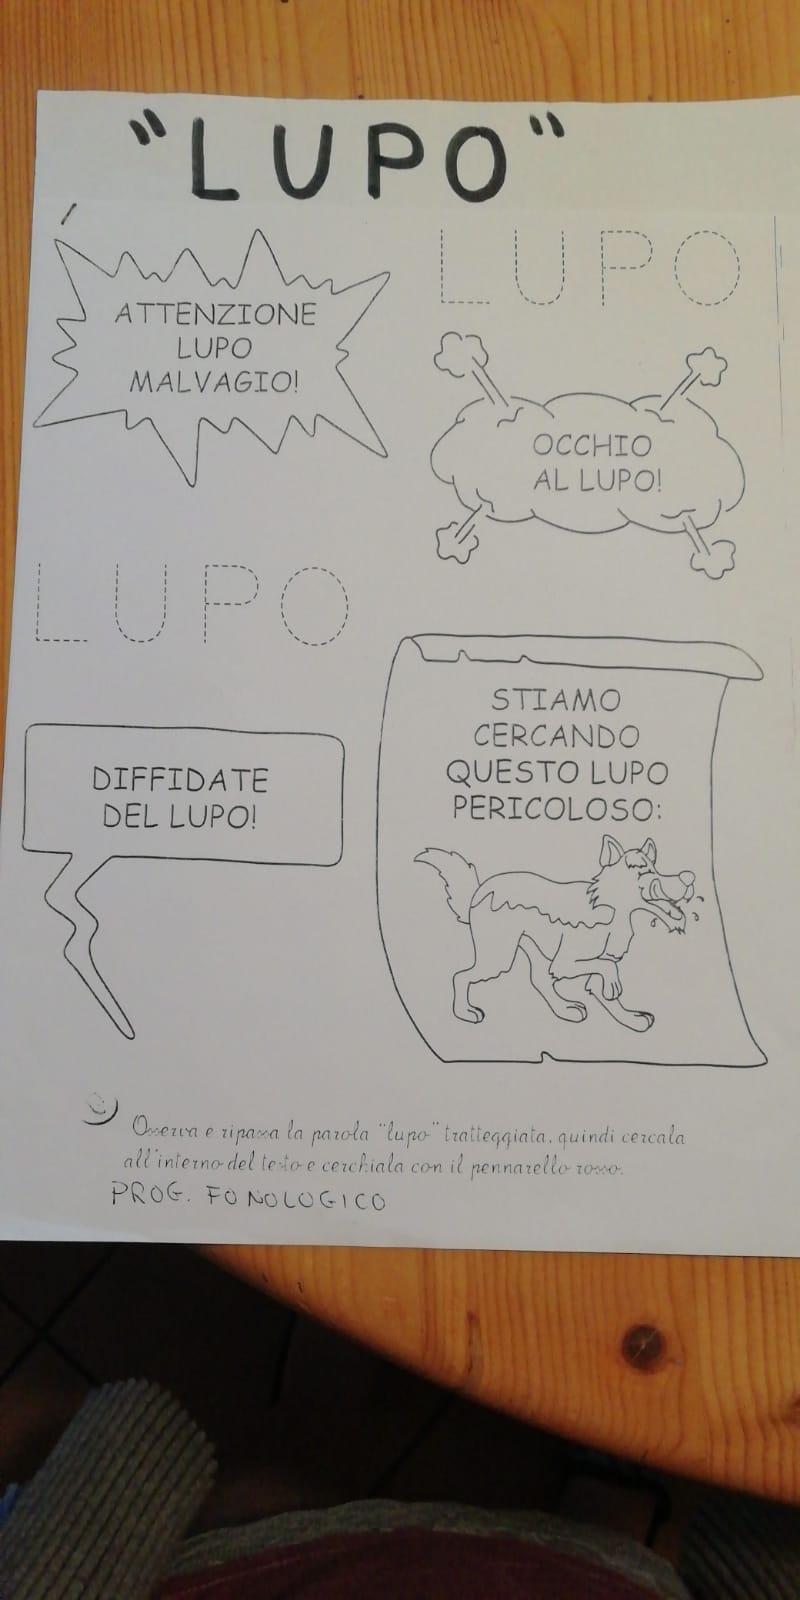 "LUPO"
ATTENZIONE
LUPO
MALVAGIO!
LUPO
OCCHIO
AL LUPO!
LUPO
DIFFIDATE
DEL LUPO!
STIAMO
CERCANDO
QUESTO LUPO
PERICOLOSO:
Osserva e ripassa la parola "lupo" tratteggiata, quindi cercala
all'interno del testo e cerchiala con il pennarello rosso.
PROG. FONOLOGICO